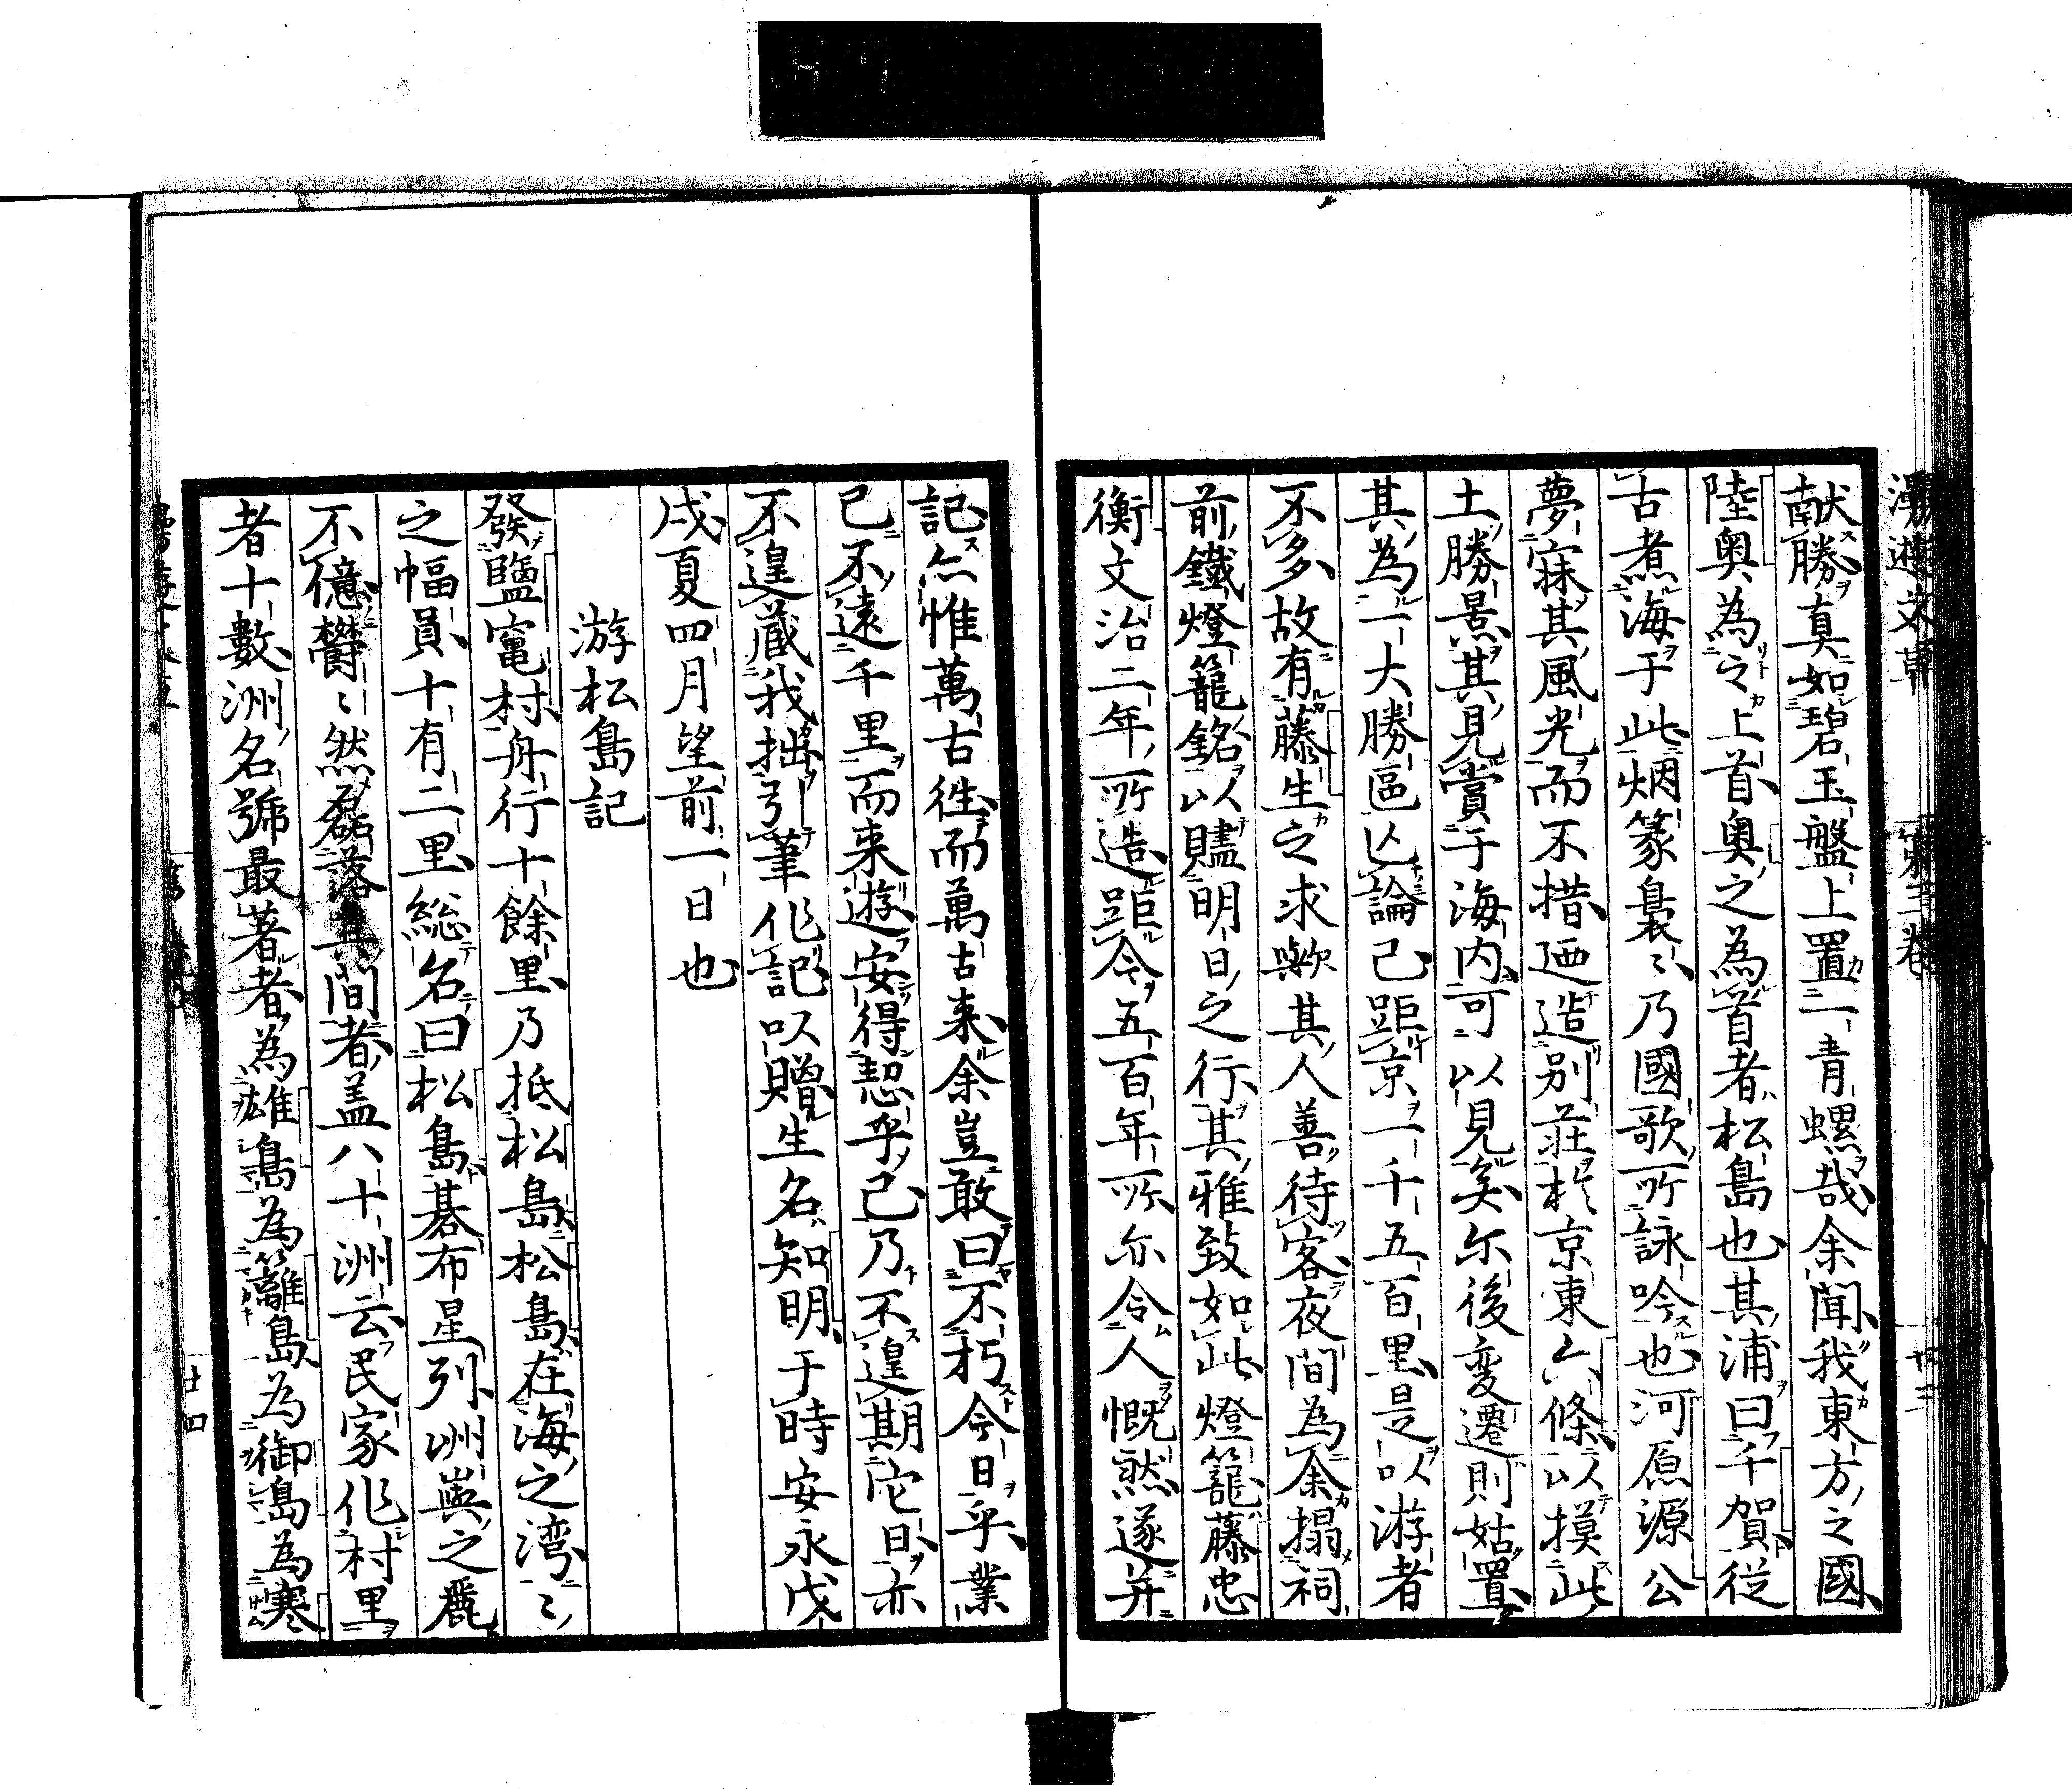 漫遊文草 第三巻
献勝真如碧玉盤上置一青螺哉余聞我東方之國
陸奧為之上首奧之為首者松島也其浦曰千賀從
古煮海于此烟篆裊〻乃國歌所詠吟也河原源公
夢寐其風光而不措迺造別莊於京東六條以摸此
土勝景其見賞于海内可以見矣尓後変遷則姑置
其為一大勝區亾論已距京一千五百里是以游者
不多故有藤生之求歟其人善待客夜間為余搨祠
前鐵燈籠銘以贐明日之行其雅致如此燈籠藤忠
衡文治二年所造距今五百年所亦令人慨然遂并
記尒惟萬古徃而萬古来余豈敢曰不朽今日乎業
已不遠千里而来遊安得恝乎已乃不遑期它日亦
不遑蔵我拙引筆作記以贈生名知明于時安永戊
戌夏四月望前一日也
游松島記
發鹽竃村舟行十餘里乃抵松島松島在海之湾〻
之幅員十有二里総名曰松島碁布星列洲嶼之麗
不億欝〻然磊落其間者盖八十洲云民家作村里
者十數洲名號最著者為雄島為籬島為御島為寒
廿四